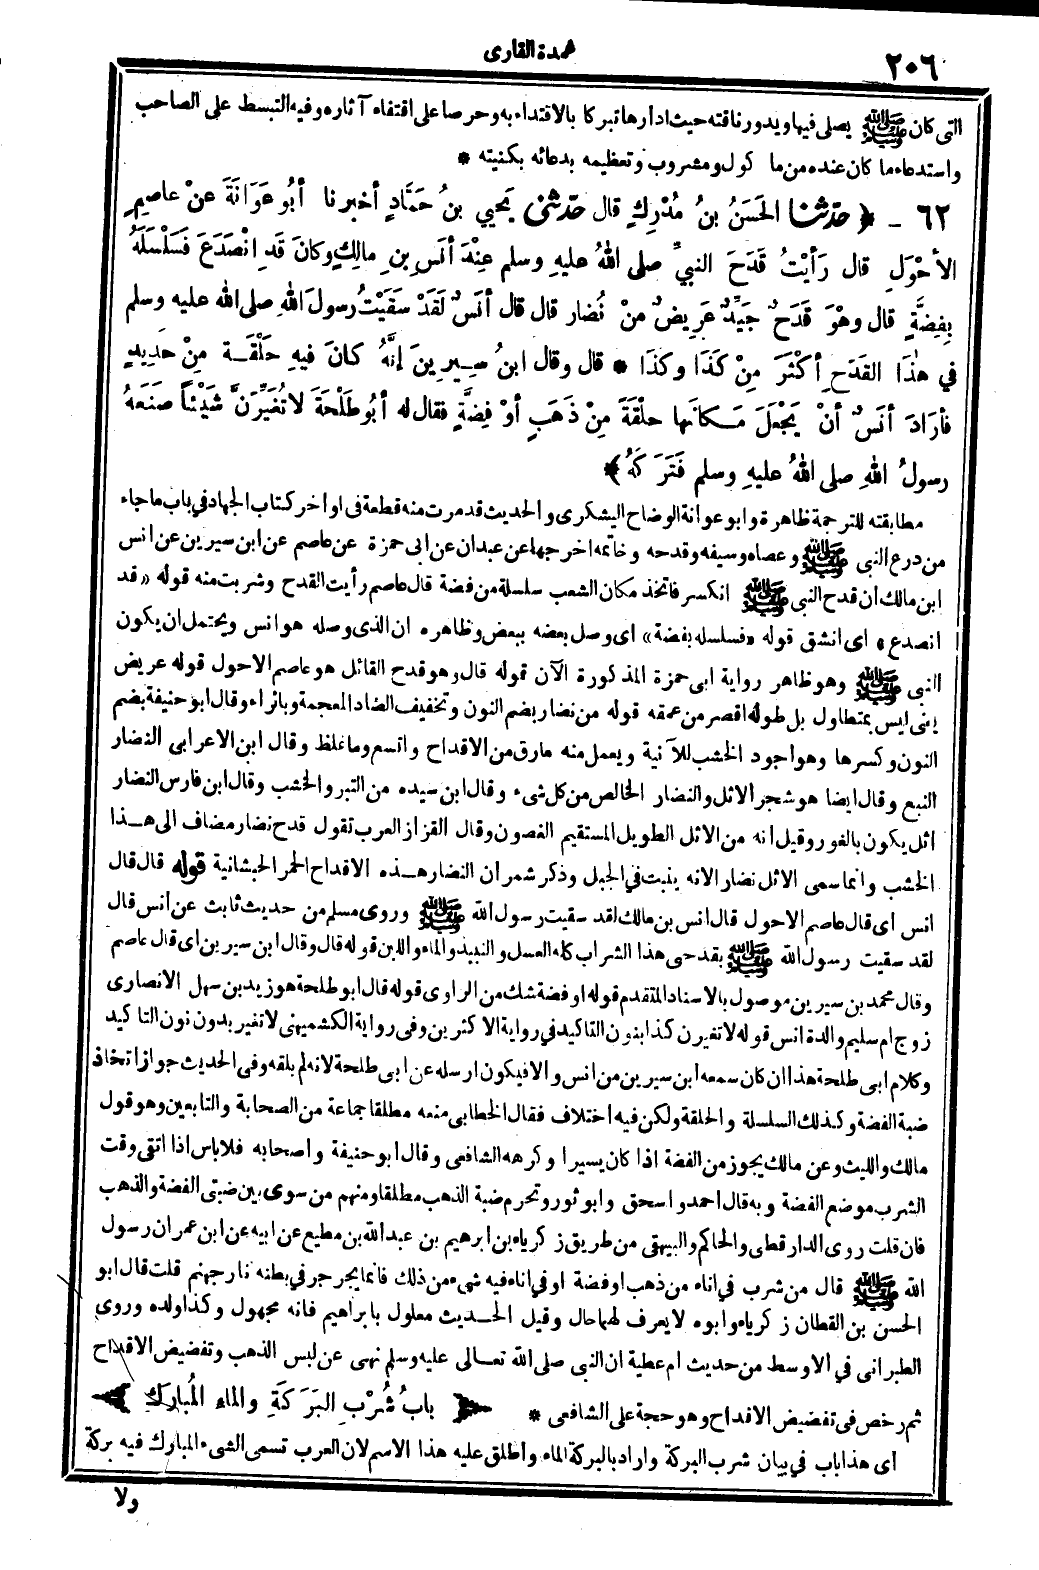 ٢٠٦
عمدة القارى
التى كان ﷺ يصلى فيها ويدور ناقته حيث ادارها تبركا بالاقتداء به وحرصا على اقتفاء آثاره وفيه التبسط على الصاحب
واستدعاء ما كان عنده من ماكول ومشروب وتعظيمه بدعائه بكنيته *
٦٢ ـ ﴿ حدّثنا الحَسَنُ بنُ مُدْرِكٍ قال حدّثنى يَحْيى بنُ حَمَّادٍ أخبرنا أبُو عَوَانَةَ عنْ عاصِمٍ
الأحْوَلِ قال رَأيْتُ قَدَحَ النبيِّ صلى اللهُ عليهِ وسلم عِنْدَ أنَسِ بنِ مالِكٍ وكانَ قَدِ انْصَدَعَ فَسَلْسَلَهُ
بِفِضَّةٍ قال وهْوَ قَدَحٌ جَيِّدٌ عَرِيضٌ منْ نُضار قال قال أنَسٌ لَقَدْ سَقَيْتُ رسولَ اللهِ صلى الله عليه وسلم
في هذَا القَدَحِ أكْثَرَ مِنْ كَذَا وكَذَا * قال وقال ابنُ سِيرِينَ إنَّهُ كانَ فيهِ حَلْقَةٌ مِنْ حَدِيدٍ
فأرَادَ أنَسٌ أنْ يَجْعَلَ مَكانَها حلْقَةً مِنْ ذَهَبٍ أوْ فِضَّةٍ فقال له أبُو طَلْحَةَ لا تُغَيِّرَنَّ شَيْئاً صَنَعَهُ
رسولُ اللهِ صلى اللهُ عليهِ وسلم فَتَرَكَهُ ﴾*
مطابقته للترجمة ظاهرة وابو عوانة الوضاح اليشكرى والحديث قد مرت منه قطعة فى اواخر كتاب الجهاد في باب ما جاء
من درع النبى ﷺ وعصاه وسيفه وقدحه وخاتمه اخرجها عن عبدان عن ابى حمزة عن عاصم عن ابن سيرين عن انس
ابن مالك أن قدح النبى ﷺ انكسر فاتخذ مكان الشعب سلسلة من فضة قال عاصم رأيت القدح وشربت منه قوله «قد
انصدع» اى انشق قوله «فسلسله بفضة» اى وصل بعضه ببعض وظاهره ان الذى وصله هو انس ويحتمل ان يكون
النبى ﷺ وهو ظاهر رواية ابى حمزة المذكورة الآن قوله قال وهو قدح القائل هو عاصم الاحول قوله عريض
يعنى ليس بمتطاول بل طوله اقصر من عمقه قوله من نضار بضم النون وتخفيف الضاد المعجمة وبالراء وقال ابو حنيفة بضم
النون وكسرها وهو اجود الخشب للآنية ويعمل منه مارق من الاقداح واتسع وما غلظ وقال ابن الاعرابى النضار
النبع وقال ايضا هو شجر الاثل والنضار الخالص من كل شىء وقال ابن سيده من التبر والخشب وقال ابن فارس النضار
اثل يكون بالغور وقيل انه من الاثل الطويل المستقيم الغصون وقال القزاز العرب تقول قدح نضار مضاف الى هذا
الخشب وانما سمى الاثل نضار الانه ينبت في الجبل وذكر شمر ان النضار هذه الاقداح الحمر الحبشانية قوله قال قال
انس اى قال عاصم الاحول قال انس بن مالك لقد سقيت رسول الله ﷺ وروى مسلم من حديث ثابت عن انس قال
لقد سقيت رسول الله ﷺ بقدحى هذا الشراب كله العسل والنبيذ والماء واللبن قوله قال وقال ابن سيرين اى قال عاصم
وقال محمد بن سيرين موصول بالاسناد المتقدم قوله او فضة شك من الراوى قوله قال ابو طلحة هو زيد بن سهل الانصارى
زوج ام سليم والدة انس قوله لا تغيرن كذا بنون التاكيد في رواية الاكثرين وفى رواية الكشميهنى لا تغير بدون نون التاكيد
وكلام ابى طلحة هذا ان كان سمعه ابن سيرين من انس والا فيكون ارسله عن ابى طلحة لانه لم يلقه وفى الحديث جواز اتخاذ
ضبة الفضة وكذلك السلسلة والحلقة ولكن فيه اختلاف فقال الخطابى منعه مطلقا جماعة من الصحابة والتابعين وهو قول
مالك والليث وعن مالك يجوز من الفضة اذا كان يسيرا وكرهه الشافعى وقال ابو حنيفة واصحابه فلا باس اذا اتقى وقت
الشرب موضع الفضة وبه قال احمد واسحق وابو ثور وتحرم ضبة الذهب مطلقا ومنهم من سوى بين ضبتى الفضة والذهب
فان قلت روى الدارقطى والحاكم والبيهقى من طريق زكرياء بن ابرهيم بن عبد الله بن مطيع عن ابيه عن ابن عمر ان رسول
الله ﷺ قال من شرب في اناء من ذهب او فضة او في اناء فيه شىء من ذلك فانما يجرجر في بطنه نار جهنم قلت قال ابو
الحسن بن القطان زكرياء وابوه لا يعرف لهما حال وقيل الحديث معلول بابراهيم فانه مجهول وكذا ولده وروى
الطبرانى في الاوسط من حديث ام عطية ان النبى صلى الله تعالى عليه وسلم نهى عن لبس الذهب وتفضيض الاقداح
ثم رخص فى تفضيض الاقداح وهو حجة على الشافعى * ﴿ بابُ شُرْبِ البَرَكَةِ والماءِ المُبارَكِ ﴾
اى هذا باب في بيان شرب البركة واراد بالبركة الماء واطلق عليه هذا الاسم لان العرب تسمى الشىء المبارك فيه بركة
ولا